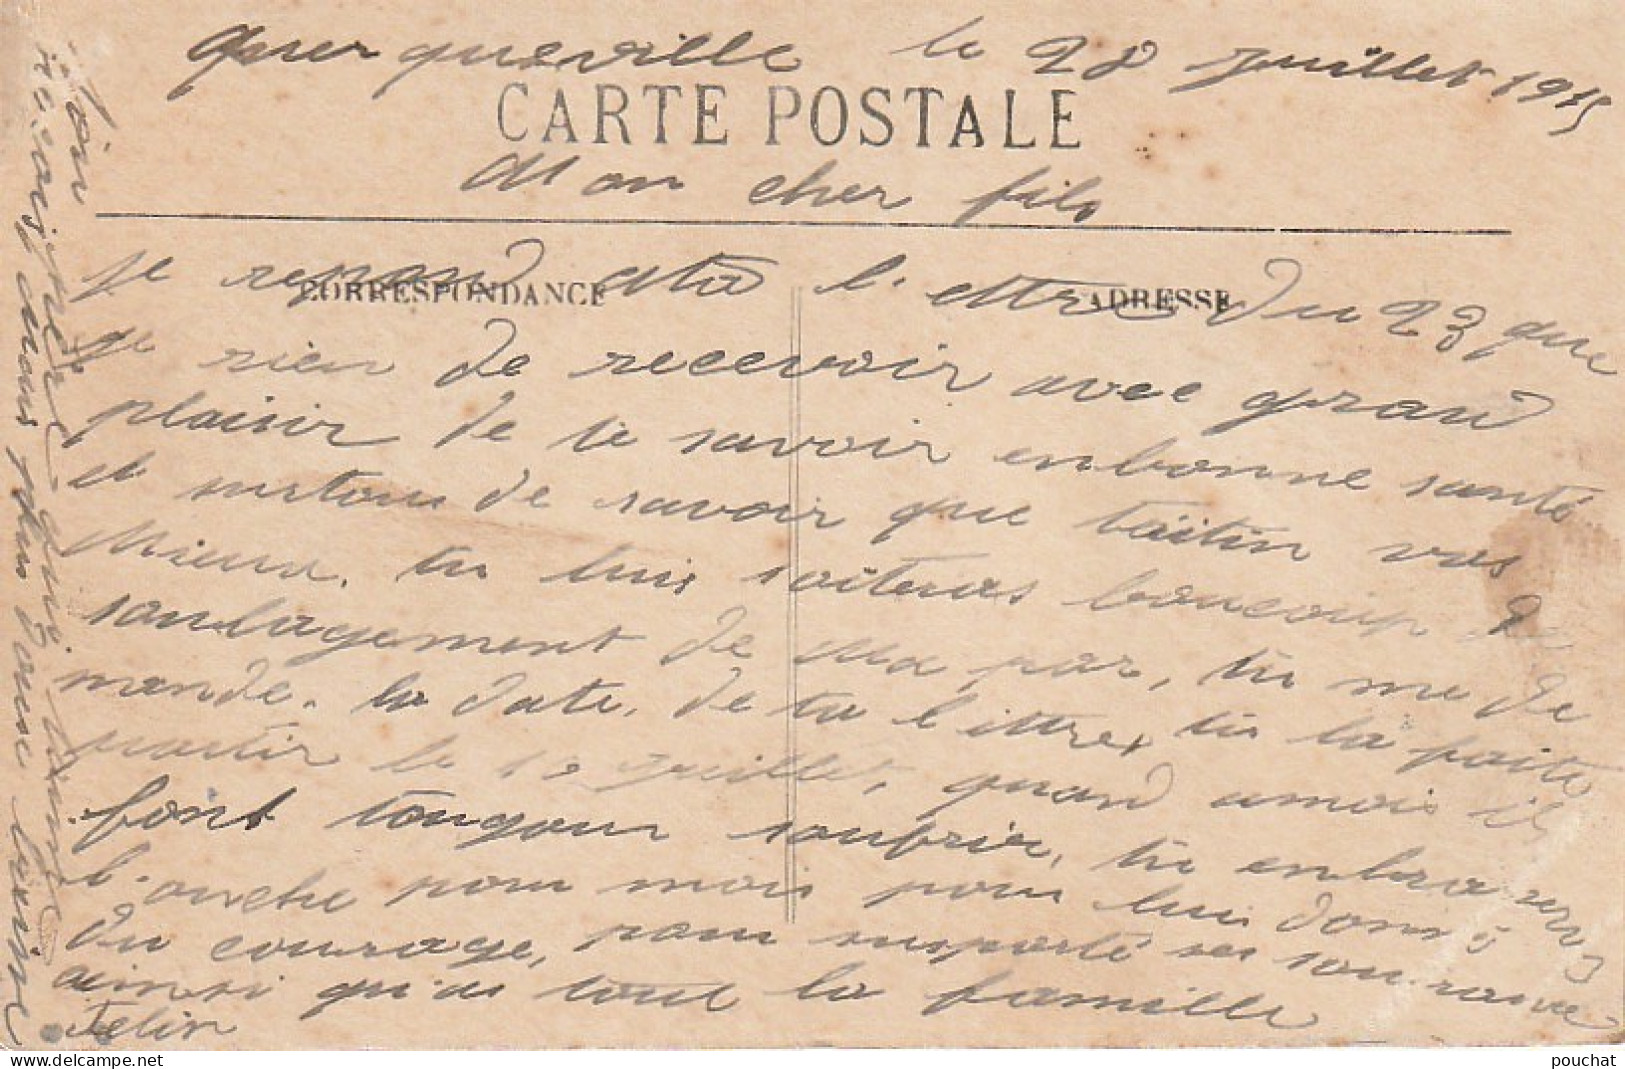 Querqueville le 28 Juillet 1915
CARTE POSTALE
Mon cher fils
CORRESPONDANCE
ADRESSE
je repond a ta l'ettre du 23 que
je vien de recevoir avec grand
plaisir de te savoir en bonne santé
et surtous de savoir que titin vas
Mieux. tu luis soiteras boucoup de
soulagement de Ma par, tu me de
mande. la date. de ta l'ettres tu la faite
partir le 12 Juillet, quand a mois il
font tougour soufrir, tu enbrasseras
b. ouche pour mois pour luis donné
du courage, pour suporté ses souf
ainsi qu'as toute la famille
Felix
Ton père que t'aime